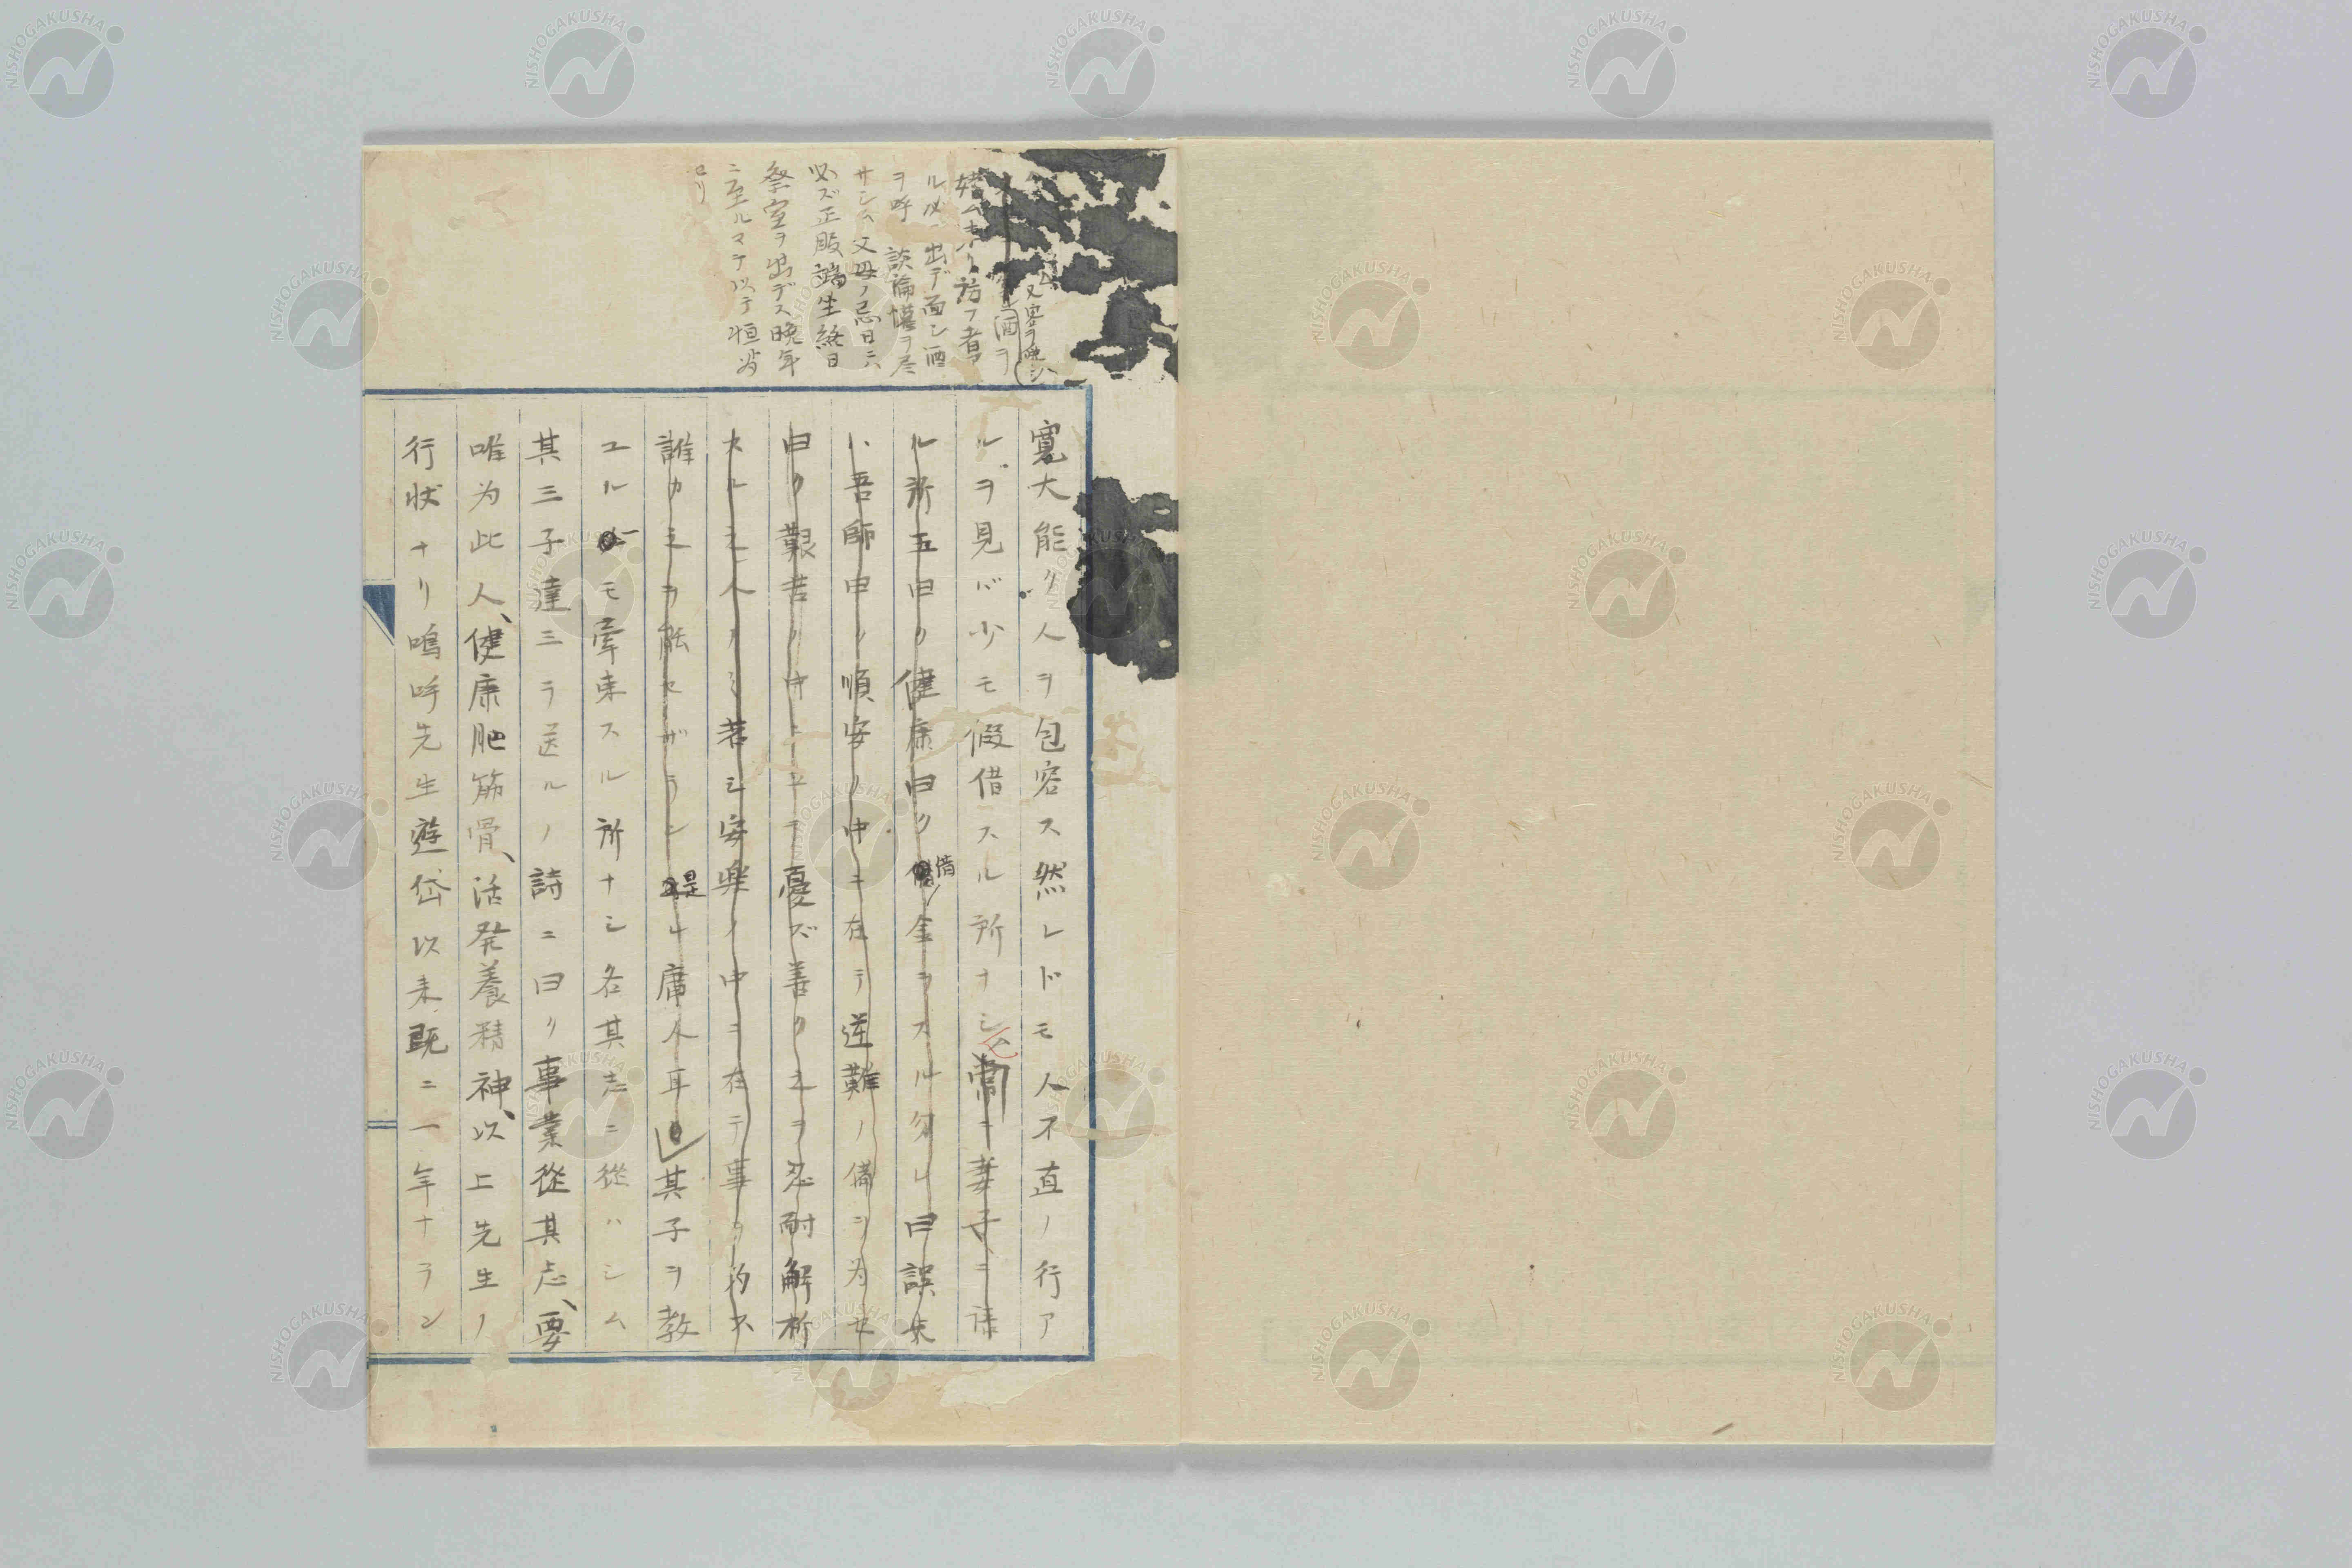 又客ヲ
酒ヲ
訪フ者ア
ル必ニ出デ面シ酒
ヲ呼 談論懽ヲ尽
サシム 父母ノ忌日ニハ
必ズ正服端坐終日
祭室ヲ出デス晩年
ニ至ルマテ以テ恒
寛大能ク人ヲ包容ス然レドモ人不直ノ行ア
ルヲ見バ少モ假借スル所ナシ常ニ妻子ニ
ル所五曰ク健康曰ク借金ヲスル勿レ曰
ハ吾師申ノ順安ノ中ニ在テ逆難ノ備ヲ為セ
曰ク艱苦ノ中ニ テ憂ズ善ク之ヲ忍耐解析
スル之人ノミ若シ安楽ノ中ニ在テ事ヲ
誰カ之ヲ能セザラン是レ庸人耳其子ヲ教
ユル モ牽束スル所ナシ各其志ニ從ハシム
其三子達三ヲ送ルノ詩ニ曰ク事業從其志、要
唯為此人、健康肥筋骨、活発養精神、以上先生ノ
行状ナリ嗚呼先生遊岱以来既ニ一年ナラン
NISHOGAKUSHA